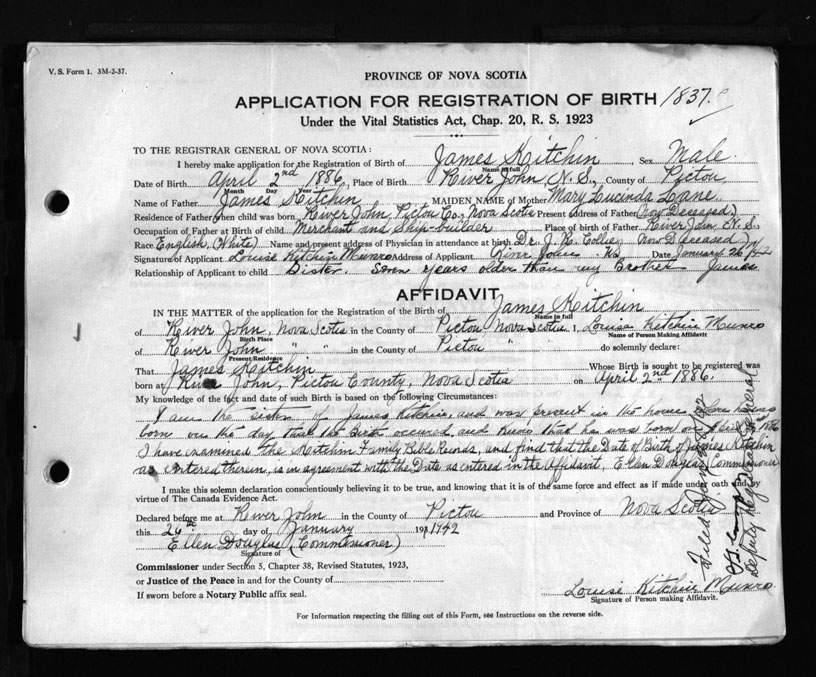 V. S. Form 1. 3M-2-37.
PROVINCE OF NOVA SCOTIA
APPLICATION FOR REGISTRATION OF BIRTH 1837.
Under the Vital Statistics Act, Chap. 20, R. S. 1923
TO THE REGISTRAR GENERAL OF NOVA SCOTIA:
I hereby make application for the Registration of Birth of James Kitchin Sex Male.
Name in full
Date of Birth April 2nd 1886, Place of Birth River John, N. S., County of Pictou
Month Day Year
Name of Father James Kitchin MAIDEN NAME of Mother Mary Lucinda Lane
Residence of Father when child was born River John, Pictou Co., Nova Scotia Present address of Father (Now Deceased)
Occupation of Father at Birth of child Merchant and Ship-builder Place of Birth of Father River John, N. S.,
Race English, (White) Name and present address of Physician in attendance at birth Dr. J. R. Collie, Now Deceased)
Signature of Applicant Louise Kitchin Munro Address of Applicant River John N.S Date January 26/42
Relationship of Applicant to child Sister. Seven years older than my Brother James
AFFIDAVIT
IN THE MATTER of the application for the Registration of the Birth of James Kitchin
Name in full
of River John, Nova Scotia in the County of Pictou Nova Scotia I, Louise Kitchin Munro
Birth Place Name of Person Making Affidavit
of River John " " in the County of Pictou " do solemnly declare:
Present Residence
That James Kitchin Whose Birth is sought to be registered was
born at River John, Pictou County, Nova Scotia on April 2nd 1886.
My knowledge of the fact and date of such Birth is based on the following Circumstances:
I am the sister of James Kitchin, and was present in the home having
born on the day that the Birth occured, and know that he was born on
I have examined the Kitchin Family Bible Records, and find that the Date of Birth of James Kitchin
as entered therein, is in agreement with the Date as entered in the Affidavit, Ellen Douglas, Commissioner
I make this solemn declaration conscientiously believing it to be true, and knowing that it is of the same force and effect as if made under oath and by
virtue of The Canada Evidence Act.
Declared before me at River John in the County of Pictou and Province of Nova Scotia
this 26th day of January 193 1942
Ellen Douglas, (Commissioner)
Signature of
Commissioner under Section 5, Chapter 38, Revised Statutes, 1923,
or Justice of the Peace in and for the County of
If sworn before a Notary Public affix seal.
Louise Kitchin Munro
Signature of Person making Affidavit.
For Information respecting the filling out of this Form, see Instructions on the reverse side.
Filed Jan. 28 1942
Deputy Registrar General